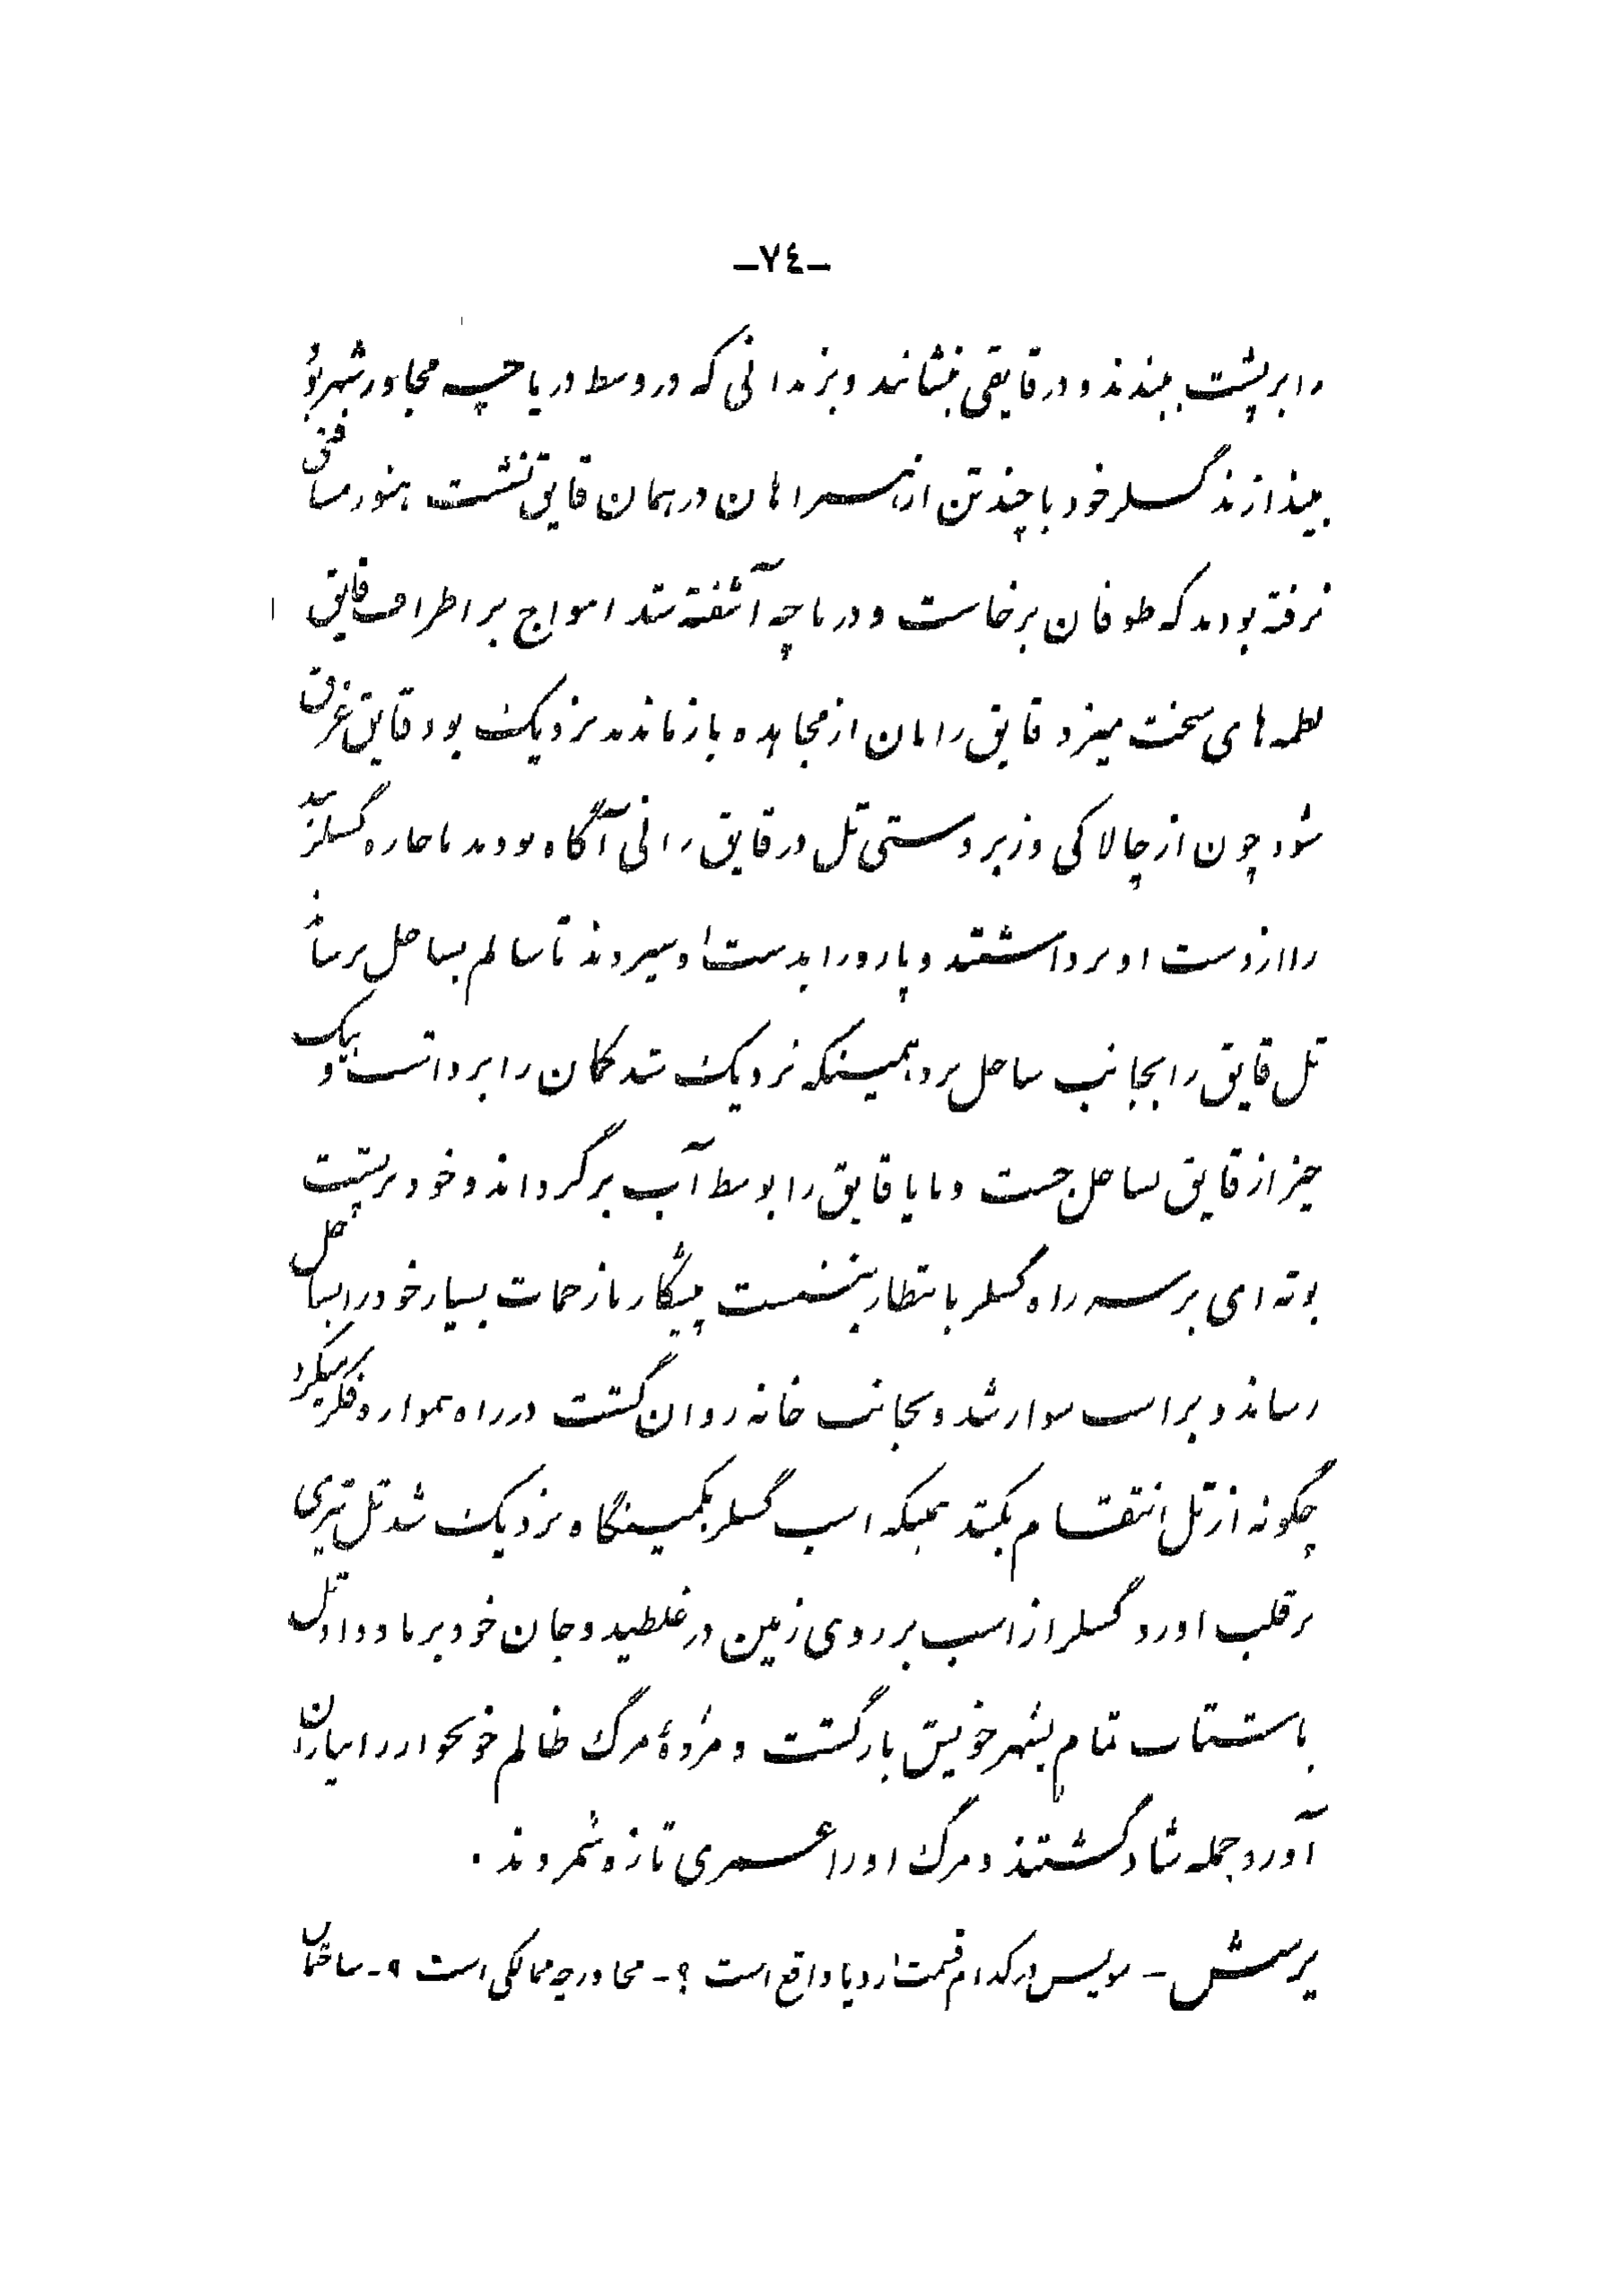 -٧٤-
را بر پشت ببندند و در قایقی بنشانند و بزندانی که در وسط دریاچه مجاور شهر بود
بیندازند گسلر خود با چند تن از همراهان در همان قایق نشست هنوز مسافتی
نرفته بودند که طوفان برخاست و دریاچه آشفته شد امواج بر اطراف قایق
لطمه‌های سخت میزد قایق رانان از مجاهده بازماندند نزدیک بود قایق غرق
شود چون از چالاکی و زبردستی تل در قایق رانی آگاه بودند ناچار گسلر بند
را از دست او برداشتند و پارو را بدست او سپردند تا سالم بساحل برساند
تل قایق را بجانب ساحل برد همینکه نزدیک شد کمان را برداشت و بیک
خیز از قایق بساحل جست و با پا قایق را بوسط آب برگرداند و خود در پشت
بوته‌ای بر سر راه گسلر بانتظار بنشست پیشگار با زحمات بسیار خود را بساحل
رساند و بر اسب سوار شد و بجانب خانه روان گشت در راه همواره فکر میکرد
چگونه از تل انتقام بکشد همینکه اسب گسلر بکمینگاه نزدیک شد تل تیری
بر قلب او زد گسلر از اسب بر روی زمین در غلطید و جان خود بر باد داد تل
با شتاب تمام بشهر خویش بازگشت و مژدهٔ مرگ ظالم خونخوار را بیاران
آورد جمله شاد گشتند و مرگ او را عمری تازه شمردند .
پرسش - سویس در کدام قسمت اروپا واقع است ؟ - مجاور چه ممالکی است ؟ - ساختمان